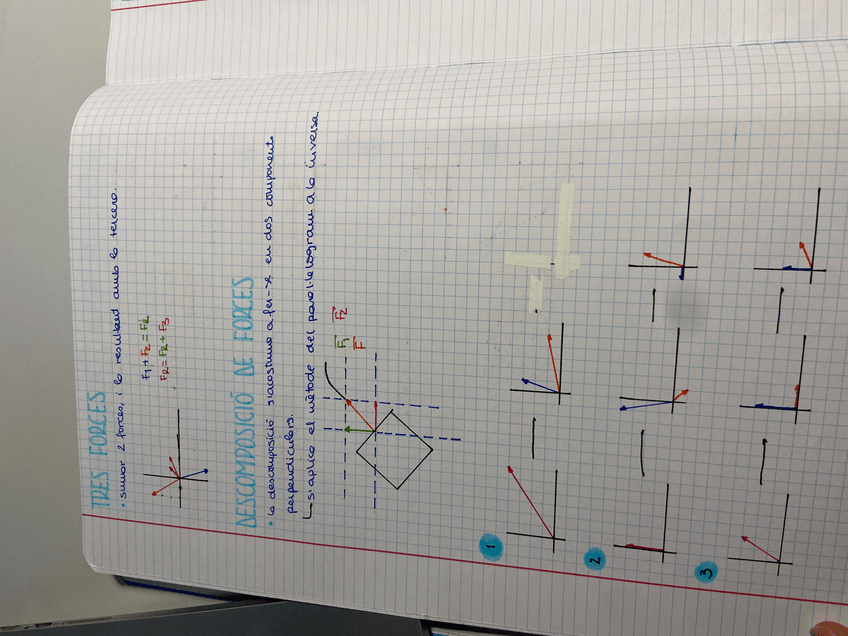 TRES FORCES
• sumar 2 forces, i la resultant amb la tercera.
F1 + F2 = FR
FR = FR + F3
DESCOMPOSICIÓ DE FORCES
• la descomposició s'acostuma a fer-se en dos components
perpendiculars.
s'aplica el mètode del paral·lelogram a la inversa.
F1 F2
F
1
2
3